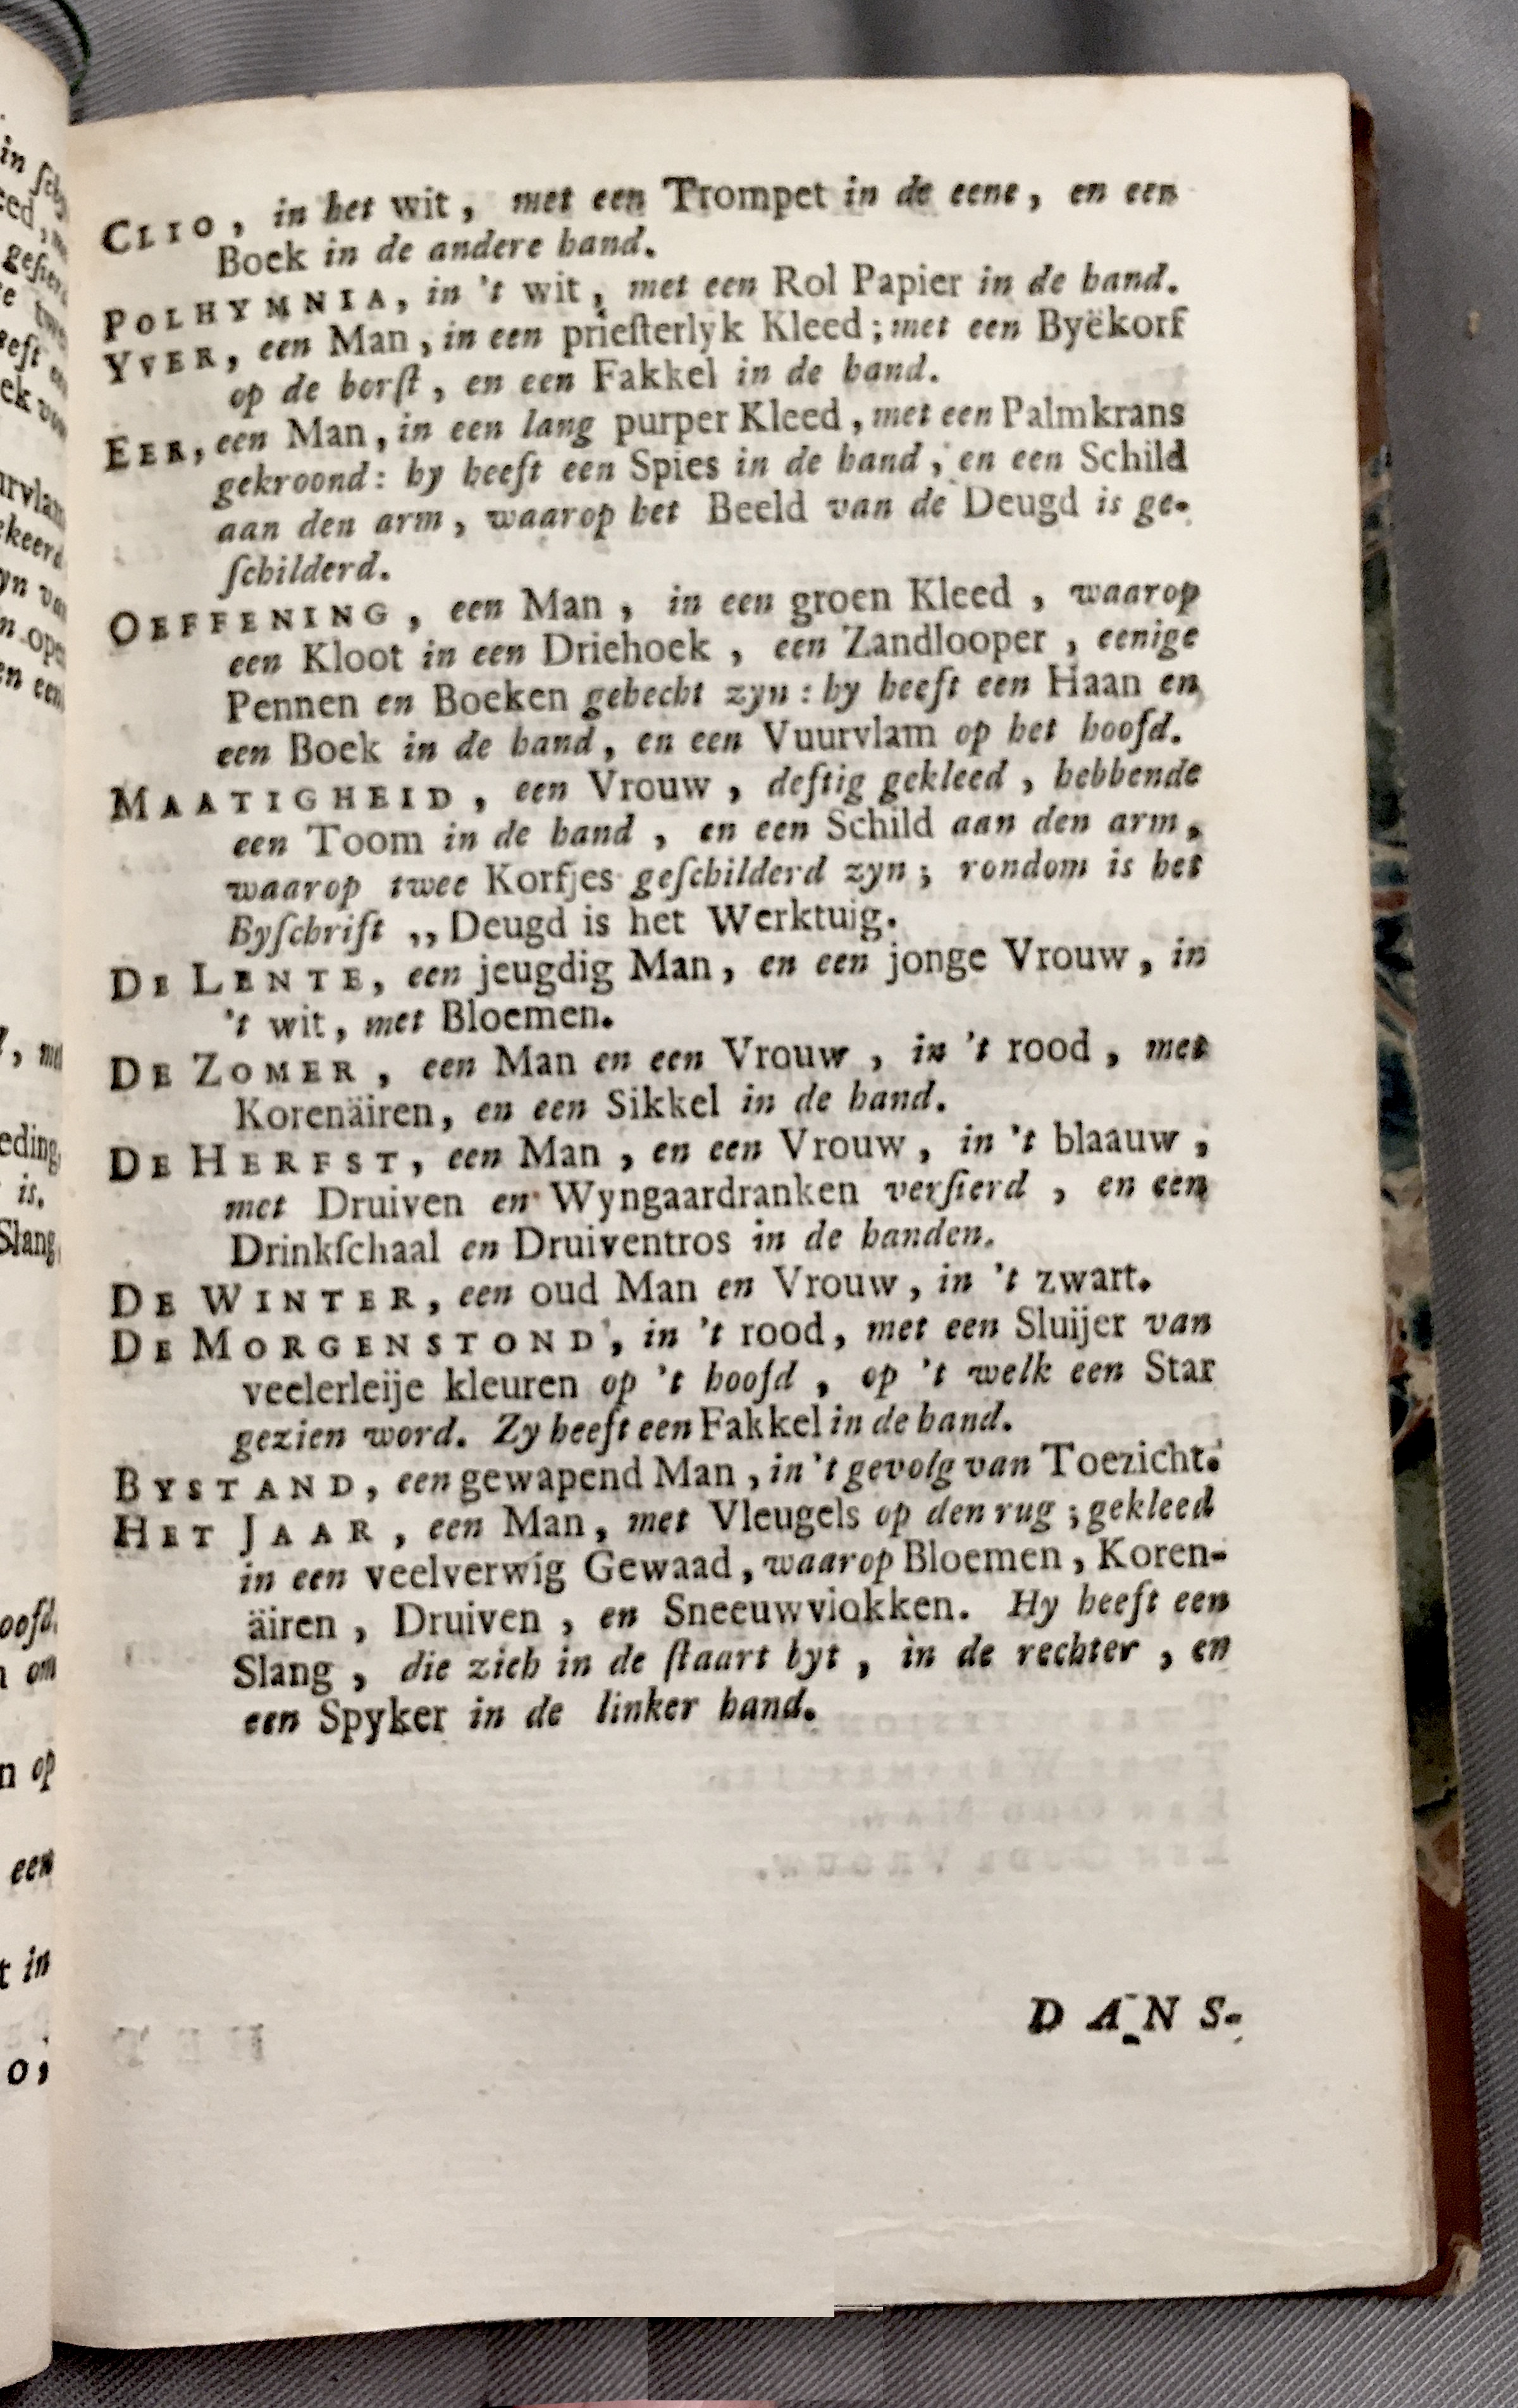 CLIO, in het wit, met een Trompet in de eene, en een
Boek in de andere hand.
POLHYMNIA, in 't wit, met een Rol Papier in de hand.
YVER, een Man, in een prieſterlyk Kleed; met een Byëkorf
op de borſt, en een Fakkel in de hand.
EER, een Man, in een lang purper Kleed, met een Palmkrans
gekroond: hy heeft een Spies in de hand, en een Schild
aan den arm, waarop het Beeld van de Deugd is ge-
ſchilderd.
OEFFENING, een Man, in een groen Kleed, waarop
een Kloot in een Driehoek, een Zandlooper, eenige
Pennen en Boeken gehecht zyn: hy heeft een Haan en
een Boek in de hand, en een Vuurvlam op het hoofd.
MAATIGHEID, een Vrouw, deſtig gekleed, hebbende
een Toom in de hand, en een Schild aan den arm,
waarop twee Korfjes geſchilderd zyn; rondom is het
Byſchrift ,, Deugd is het Werktuig.
DE LENTE, een jeugdig Man, en een jonge Vrouw, in
't wit, met Bloemen.
DE ZOMER, een Man en een Vrouw, in 't rood, met
Korenäiren, en een Sikkel in de hand.
DE HERFST, een Man, en een Vrouw, in 't blaauw,
met Druiven en Wyngaardranken verſierd, en een
Drinkſchaal en Druiventros in de handen.
DE WINTER, een oud Man en Vrouw, in 't zwart.
DE MORGENSTOND, in 't rood, met een Sluijer van
veelerleije kleuren op 't hoofd, op 't welk een Star
gezien word. Zy heeft een Fakkel in de hand.
BYSTAND, een gewapend Man, in 't gevolg van Toezicht.
HET JAAR, een Man, met Vleugels op den rug; gekleed
in een veelverwig Gewaad, waarop Bloemen, Koren-
äiren, Druiven, en Sneeuwvlokken. Hy heeft een
Slang, die zich in de ſtaart byt, in de rechter, en
een Spyker in de linker hand.
DANS-